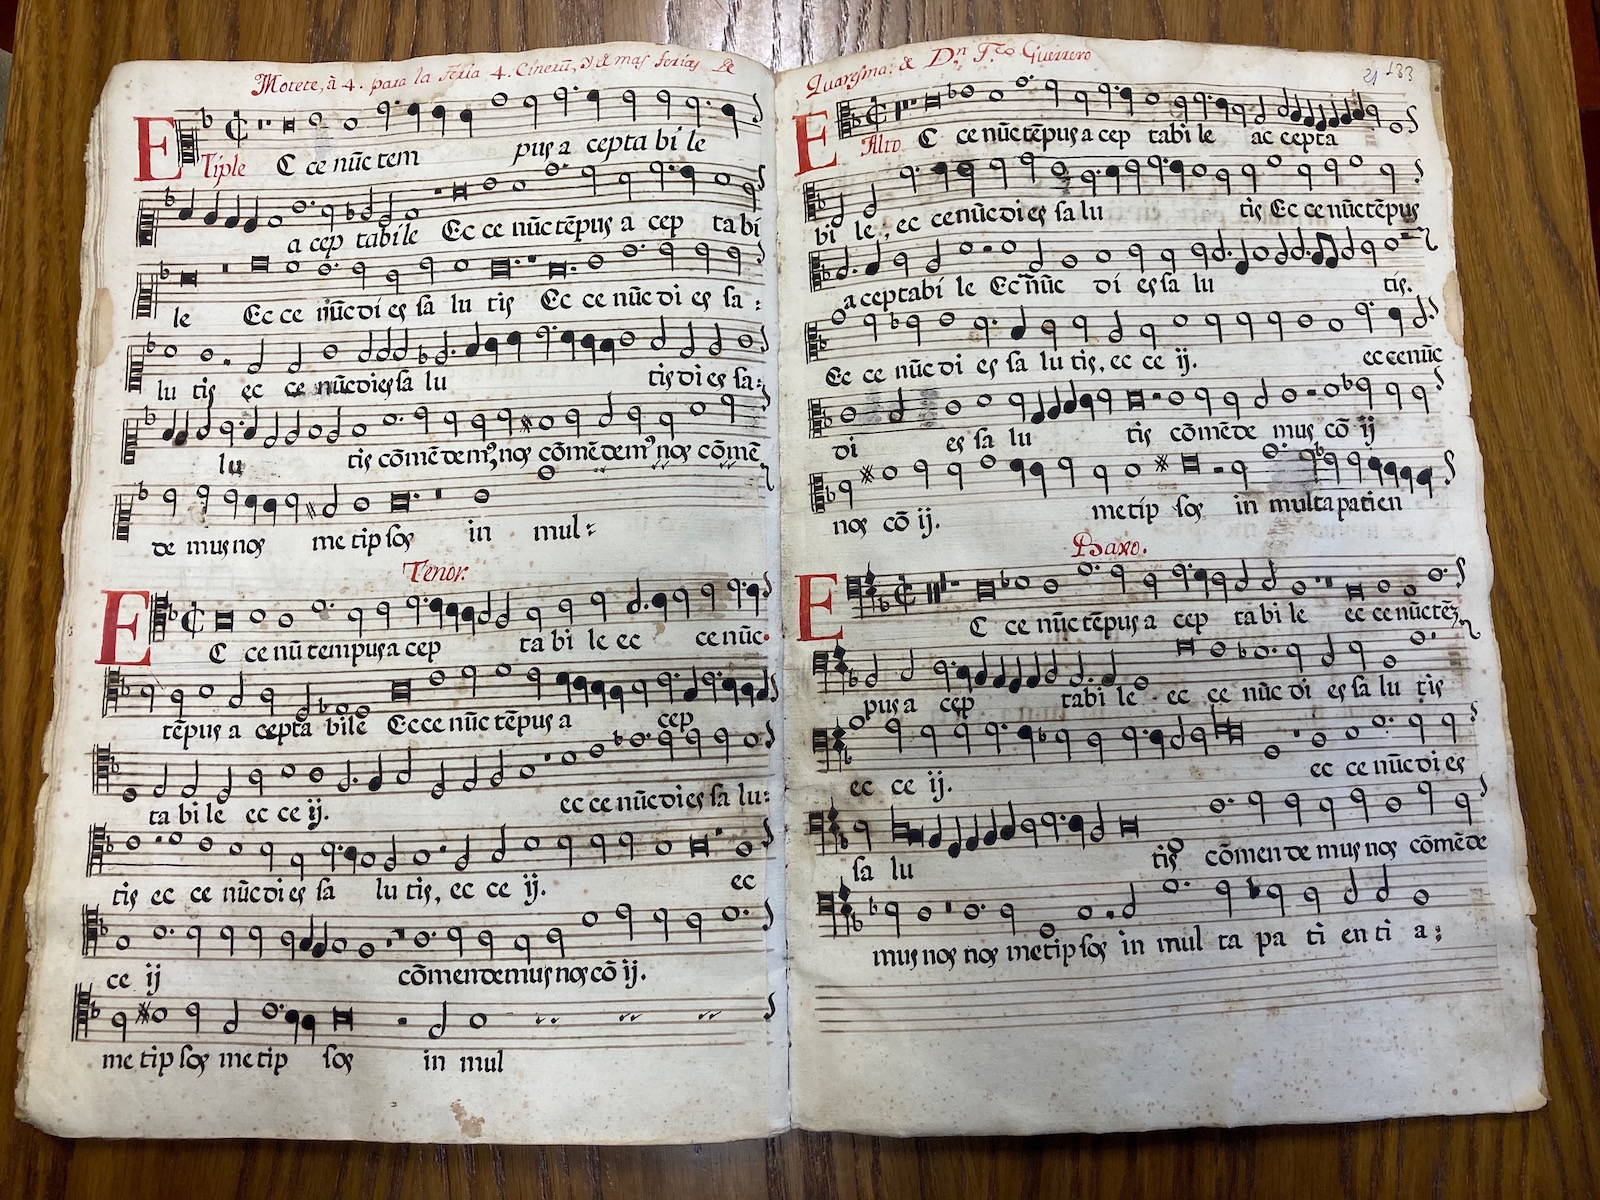 Motete, à 4. para la Feria 4. Cinerũ, y de mas ferias De
E Tiple C ce nũc tem pus a cepta bi le
a cep tabile Ec ce nũc tẽpus a cep ta bi
le Ec ce nũc di es sa lu tis Ec ce nũc di es sa :
lu tis ec ce nũc dies sa lu tis di es sa :
lu tis cõmẽdem⁹, nos cõmẽdem⁹ nos cõmẽ
de mus nos me tip sos in mul :
Tenor.
E C ce nũ tempus a cep ta bi le ec ce nũc
tẽpus a cepta bile Ecce nũc tẽpus a cep
ta bi le ec ce ij. ec ce nũc dies sa lu :
tis ec ce nũc di es sa lu tis, ec ce ij. ec
ce ij cõmendemus nos cõ ij.
me tip sos me tip sos in mul
Quaresma: de Dⁿ. Fᶜᵒ Guerrero
21 133
E Alto C ce nũc tẽpus a cep tabi le ac cepta
bi le, ec ce nũc di es sa lu tis Ec ce nũc tẽpus
a ceptabi le Ec nũc di es sa lu tis.
Ec ce nũc di es sa lu tis, ec ce ij. ec ce nũc
di es sa lu tis cõmẽde mus cõ ij
nos cõ ij. me tip sos in multa patien
Baxo.
E C ce nũc tẽpus a cep ta bi le ec ce nũc tẽ
pus a cep tabi le ec ce nũc di es sa lu tis
ec ce ij. ec ce nũc di es
sa lu tis cõmen de mus nos cõmẽ de
mus nos nos me tip sos in mul ta pa ti en ti a :